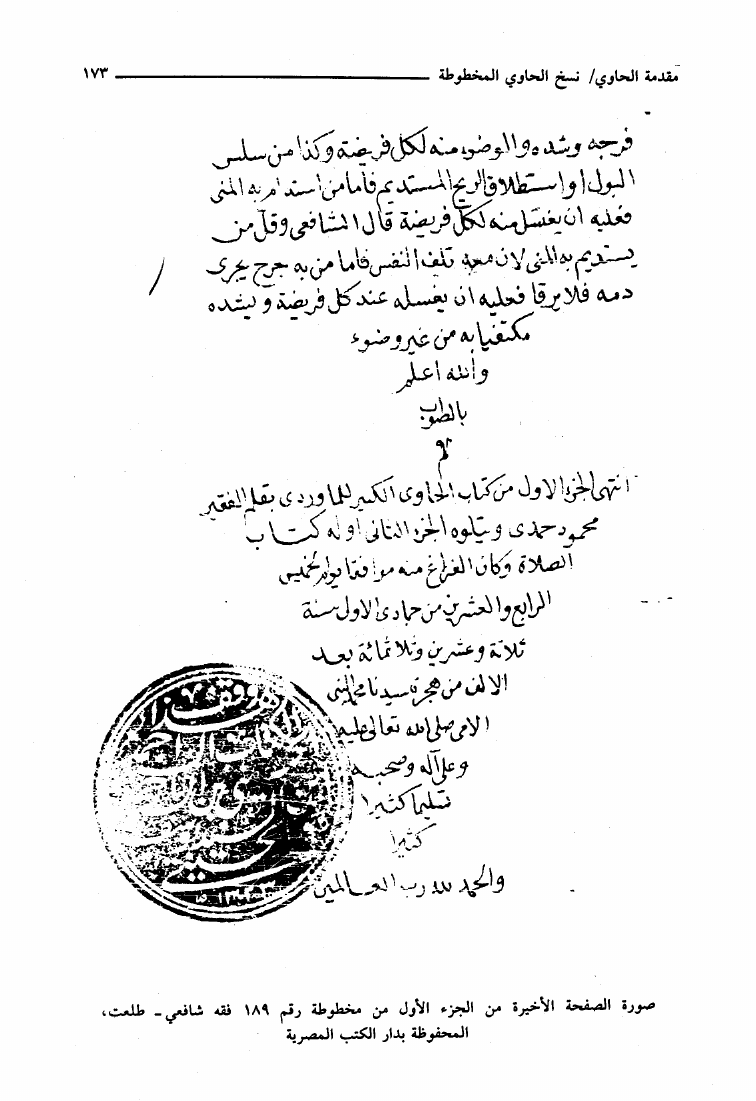 مقدمة الحاوي/ نسخ الحاوي المخطوطة ــــــــــ ١٧٣
فرجه وشده والوضوء منه لكل فريضة وكذا من سلس
البول او استطلاق الريح المستديم فأما من استدام به المنى
فعليه ان يغتسل منه لكل فريضة قال الشافعى وقل من
يستديم به المنى لان معه تلف النفس فاما من به جرح يجرى
دمه فلا يرقا فعليه ان يغسله عند كل فريضة و يشده
مكتفيا به من غير وضوء
والله اعلم
بالصواب
م
انتهى الجزء الاول من كتاب الحاوى الكبير للماوردى بقلم الفقير
محمود حمدى ويتلوه الجزء الثانى اوله كتاب
الصلاة وكان الفراغ منه موافقا يوم الخميس
الرابع والعشرين من جمادى الاول سنة
ثلاثة وعشرين وثلاثمائة بعد
الالف من هجرة سيدنا محمد النبى
الامى صلى الله تعالى عليه
وعلى آله وصحبه
تسليما كثيرا
كثيرا
والحمد لله رب العالمين
صورة الصفحة الأخيرة من الجزء الأول من مخطوطة رقم ١٨٩ فقه شافعي ـ طلعت،
المحفوظة بدار الكتب المصرية